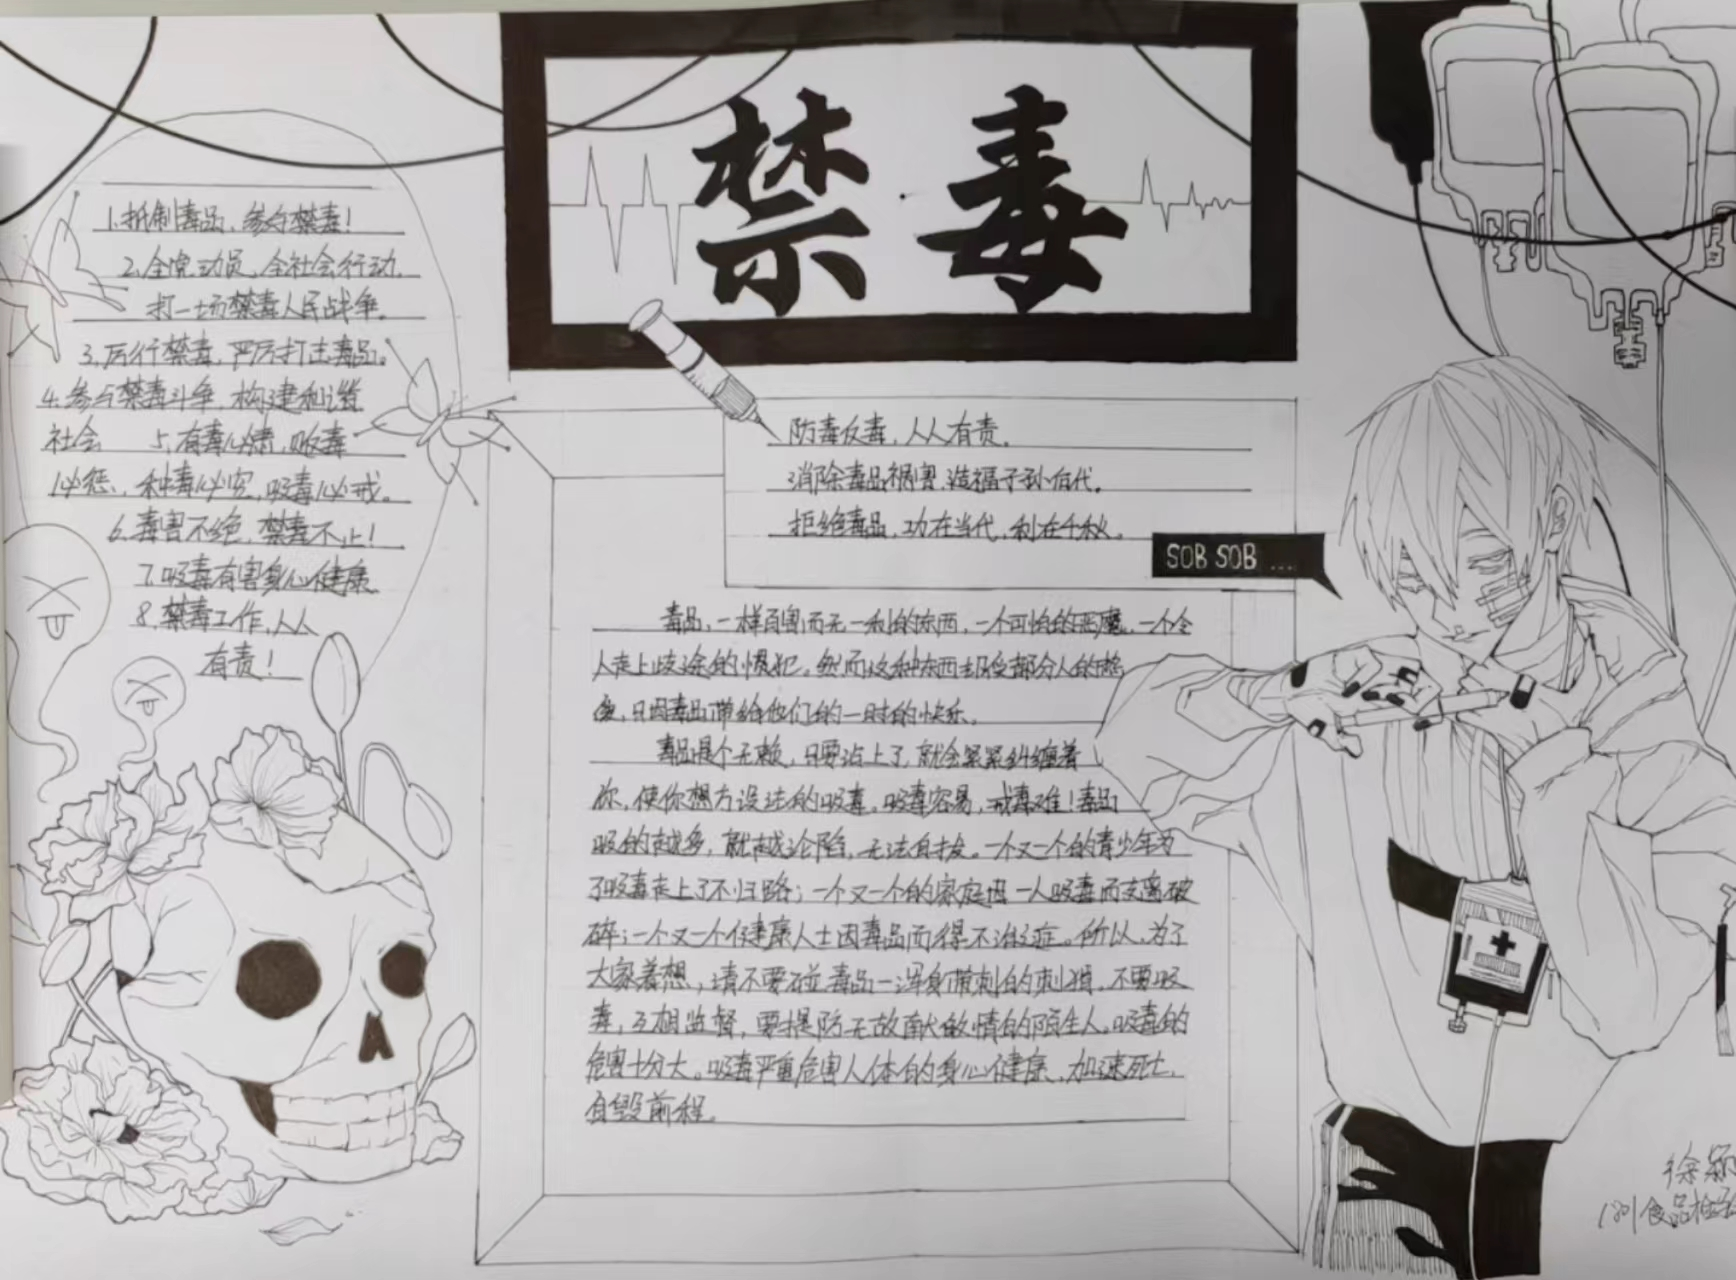 禁毒
1.抵制毒品,参与禁毒!
2.全党动员,全社会行动,
打一场禁毒人民战争。
3.厉行禁毒,严厉打击毒品。
4.参与禁毒斗争,构建和谐
社会 5.有毒必肃,贩毒
必惩,种毒必究,吸毒必戒。
6.毒害不绝,禁毒不止!
7.吸毒有害身心健康
8.禁毒工作,人人
有责!
防毒反毒,人人有责。
消除毒品祸害,造福子孙后代。
拒绝毒品,功在当代,利在千秋。
SOB SOB ...
毒品,一样百害而无一利的东西,一个可怕的恶魔,一个令
人走上歧途的惯犯。然而这种东西却受部分人的
爱,只因毒品带给他们的一时的快乐。
毒品是个无赖,只要沾上了,就会紧紧纠缠着
你,使你想方设法的吸毒。吸毒容易,戒毒难!毒品
吸的越多,就越沦陷,无法自拔。一个又一个的青少年为
了吸毒走上了不归路;一个又一个的家庭因一人吸毒而支离破
碎;一个又一个健康人士因毒品而得不治之症。所以,为了
大家着想,请不要碰毒品—浑身带刺的刺猬,不要吸
毒,互相监督,要提防无故献殷情的陌生人。吸毒的
危害十分大。吸毒严重危害人体的身心健康,加速死亡,
自毁前程。
徐颖
1801食品检